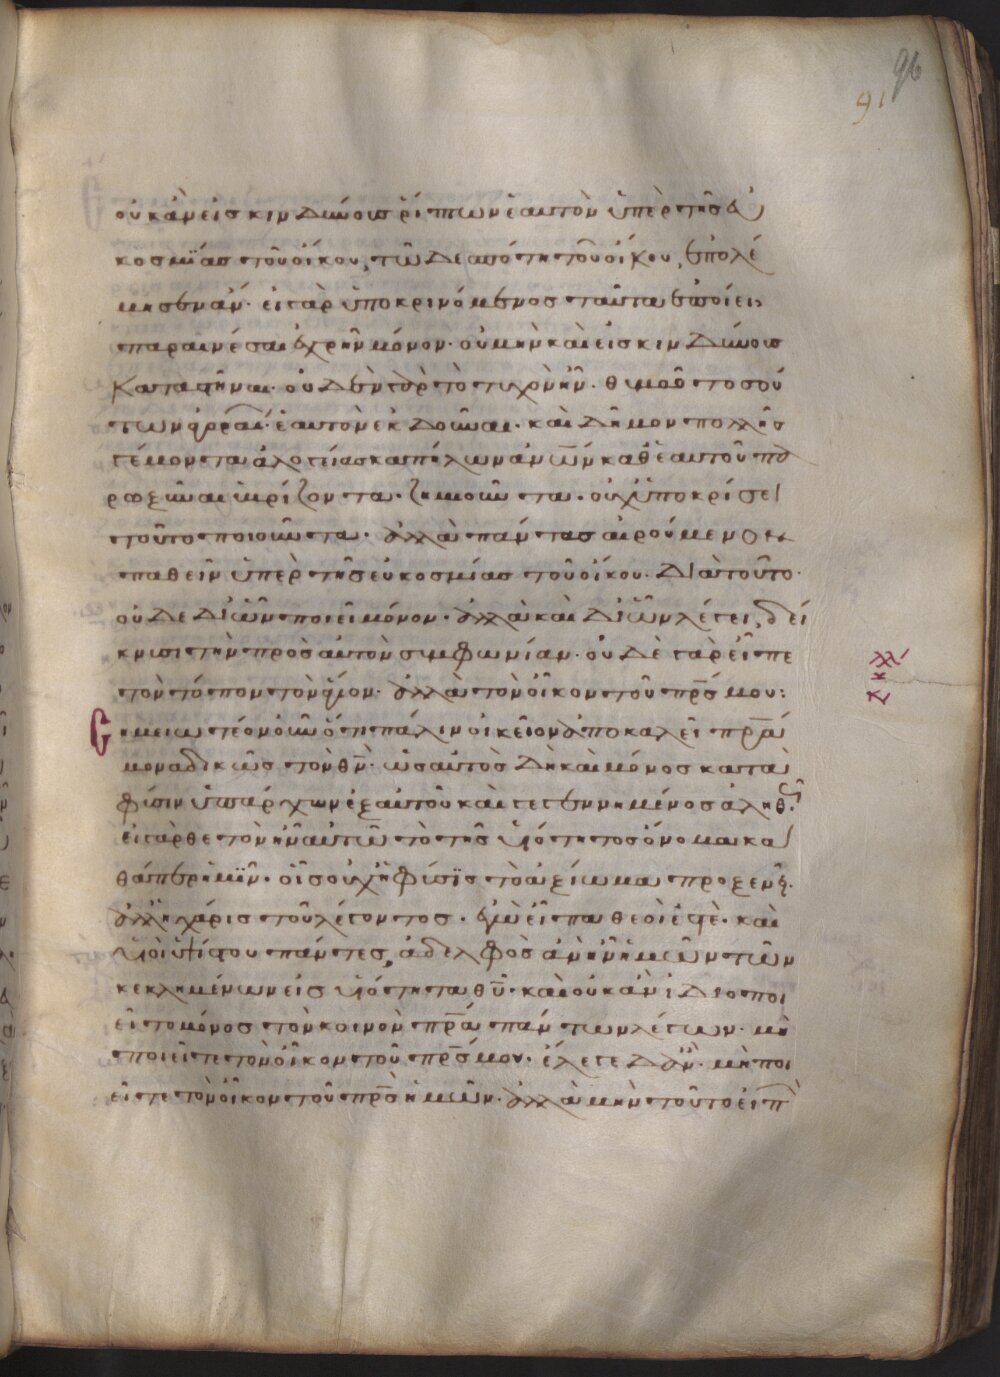 96
91
οὐκ ἂν εἰς κινδύνους ῥίπτων ἑαυτὸν ὑπὲρ τῆς εὐ
κοσμίας τοῦ οἴκου, τῶ δεσπότη τοῦ οἴκου, ἐπολέ
μησεν ἄν· εἰ γὰρ ὑποκρινόμενος ταῦτα ἐποίει,
παραινέσαι ἐχρῆν μόνον· οὐ μὴν καὶ εἰς κινδύνους
καταφῆναι· οὐδὲν γὰρ τὸ τυχὸν ἦν· θυμοῦ τοσού
των ἑαυτὸν ἐκδοῦναι· καὶ δῆμον πολλῆς
γέμοντα ἀλογίας καπήλων ἀνῶν καθ ἑαυτοῦ πα
ροξῦναι ὑβρίζοντα· ζημιοῦντα· οὐχ ὑποκρίσει
τοῦτο ποιοῦντα· ἀλλὰ πάντας αἱρούμενος
παθεῖν ὑπὲρ τῆς εὐκοσμίας τοῦ οἴκου· διὰ τοῦτο·
οὐδὲ δι ὧν ποιεῖ μόνον· ἀλλὰ καὶ δι ὧν λέγει, δεί
κνυσι τὴν πρὸς αὐτὸν συμφωνίαν· οὐδὲ γὰρ εἶπε
τὸν τόπον τὸν ἅγιον· ἀλλὰ τὸν οἶκον τοῦ πρς μου:
Σημειωτέον οὖν ὅτι πάλιν οἰκεῖον ἀποκαλεῖ πρα
μοναδικῶς τὸν θν· ὡς αὐτὸς δὴ καὶ μόνος κατὰ
φύσιν ὑπάρχων ἐξ αὐτοῦ καὶ γεγεννημένος ἀληθ
εἰ γὰρ θετὸν ἦν αὐτῶ τὸ τῆς υἱότητος ὄνομα κα
θάπερ ἡμῖν· οἷς οὐχ ἡ φύσις τὸ ἀξίωμα προξενεῖ·
ἀλλ ἡ χάρις τοῦ λέγοντος· ἐγὼ εἶπα θεοί ἐστὲ· καὶ
υἱοὶ ὑψίστου πάντες, ἀδελφὸς ἂν ἦν ἡμῶν τῶν
κεκλημένων εἰς υἱότητα θυ· καὶ οὐκ ἂν ἰδιοποι
εῖτο μόνος τὸν κοινὸν πρα πάντων λέγων· μὴ
ποιεῖτε τὸν οἶκον τοῦ πρς μου· ἔλεγε δ ἄν· μὴ ποι
εῖτε τὸν οἶκον τοῦ πρς ἡμῶν· ἀλλὰ μὴν τοῦτο εἰπ